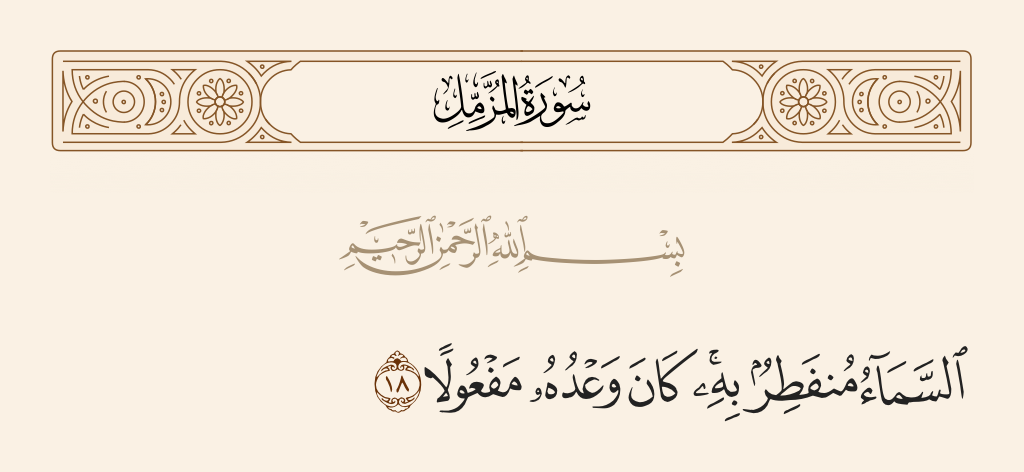 سُورَةُ المُزَّمِّلِ
بِسْمِ ٱللَّهِ ٱلرَّحْمَٰنِ ٱلرَّحِيمِ
ٱلسَّمَآءُ مُنفَطِرٌۢ بِهِۦۚ كَانَ وَعْدُهُۥ مَفْعُولًا ١٨